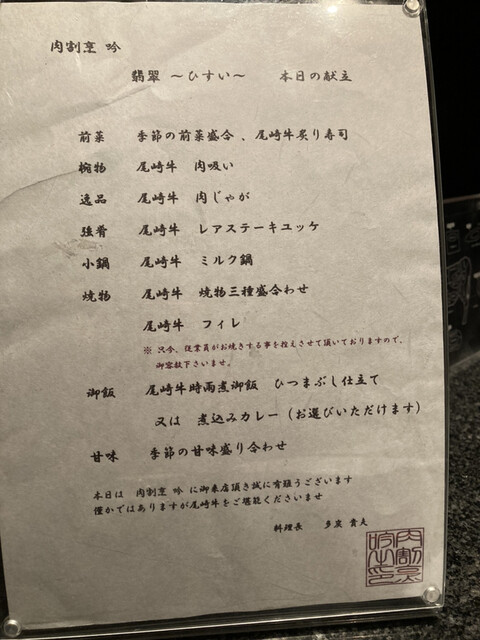 肉割烹 吟
翡翠 ～ひすい～ 本日の献立
前菜 季節の前菜盛合、尾崎牛炙り寿司
椀物 尾崎牛 肉吸い
逸品 尾崎牛 肉じゃが
強肴 尾崎牛 レアステーキユッケ
小鍋 尾崎牛 ミルク鍋
焼物 尾崎牛 焼物三種盛合わせ
尾崎牛 フィレ
※ 只今、従業員がお焼きする事を控えさせて頂いておりますので、
御容赦下さいませ。
御飯 尾崎牛時雨煮御飯 ひつまぶし仕立て
又は 煮込みカレー（お選びいただけます）
甘味 季節の甘味盛り合わせ
本日は 肉割烹 吟 に御来店頂き誠に有難うございます
僅かではありますが尾崎牛をご堪能くださいませ
料理長 多炭 貴夫
肉割烹
吟之印